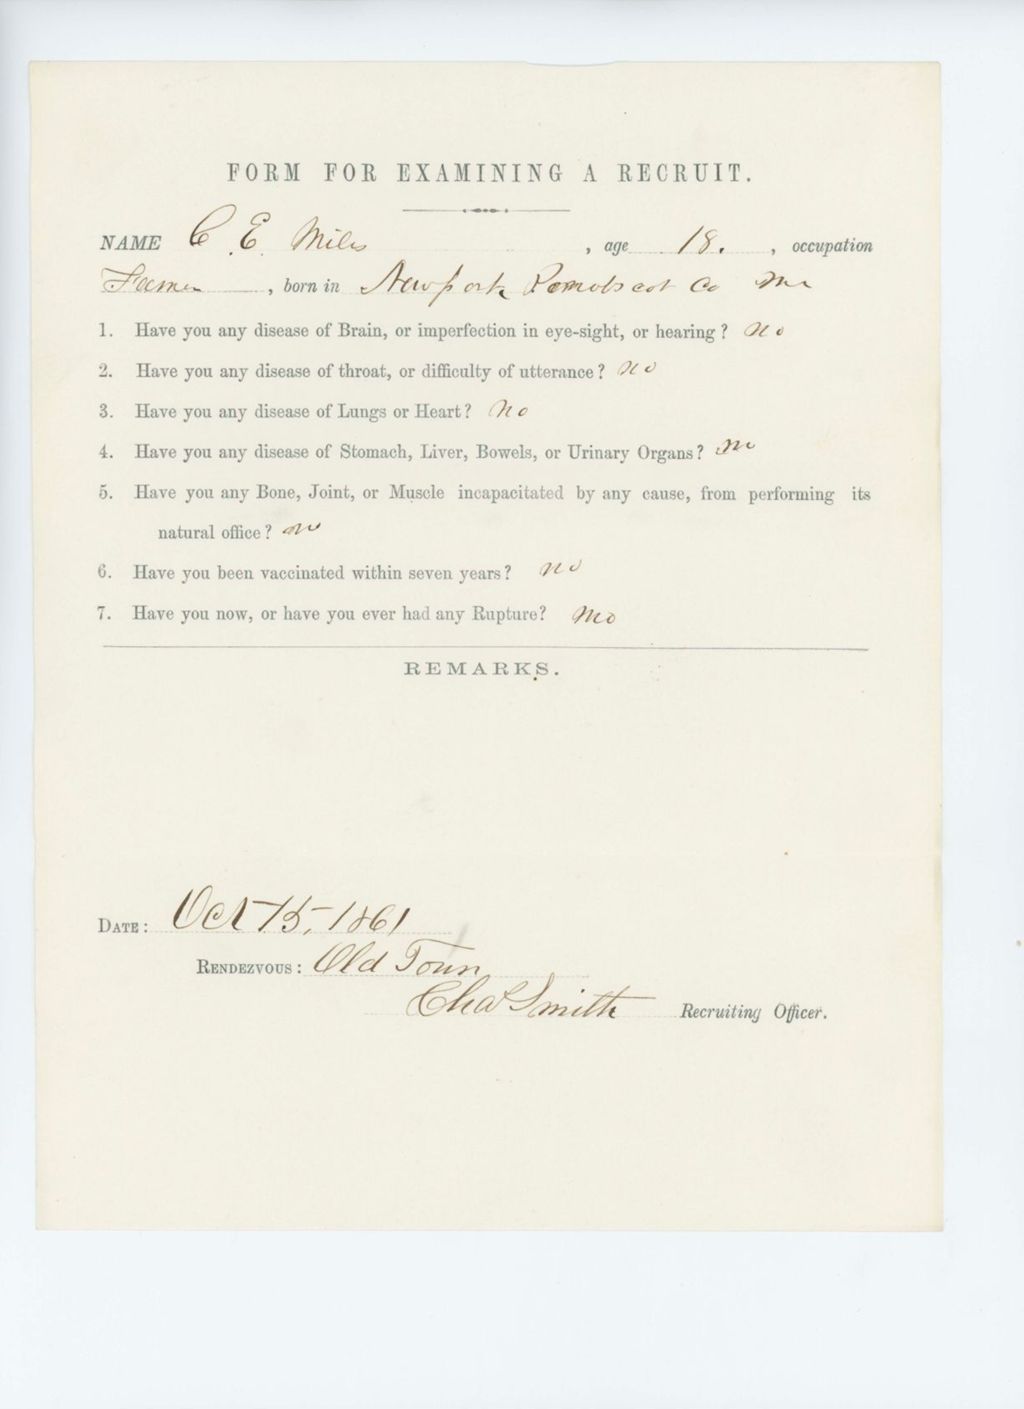 FORM FOR EXAMINING A RECRUIT.
NAME C. E. Miles, age 18., occupation
Farmer, born in Newport Penobscot Co Me
1. Have you any disease of Brain, or imperfection in eye-sight, or hearing? No
2. Have you any disease of throat, or difficulty of utterance? No
3. Have you any disease of Lungs or Heart? No
4. Have you any disease of Stomach, Liver, Bowels, or Urinary Organs? No
5. Have you any Bone, Joint, or Muscle incapacitated by any cause, from performing its
natural office? No
6. Have you been vaccinated within seven years? No
7. Have you now, or have you ever had any Rupture? No
REMARKS.
DATE: Oct 15, 1861
RENDEZVOUS: Old Town
Chas Smith Recruiting Officer.